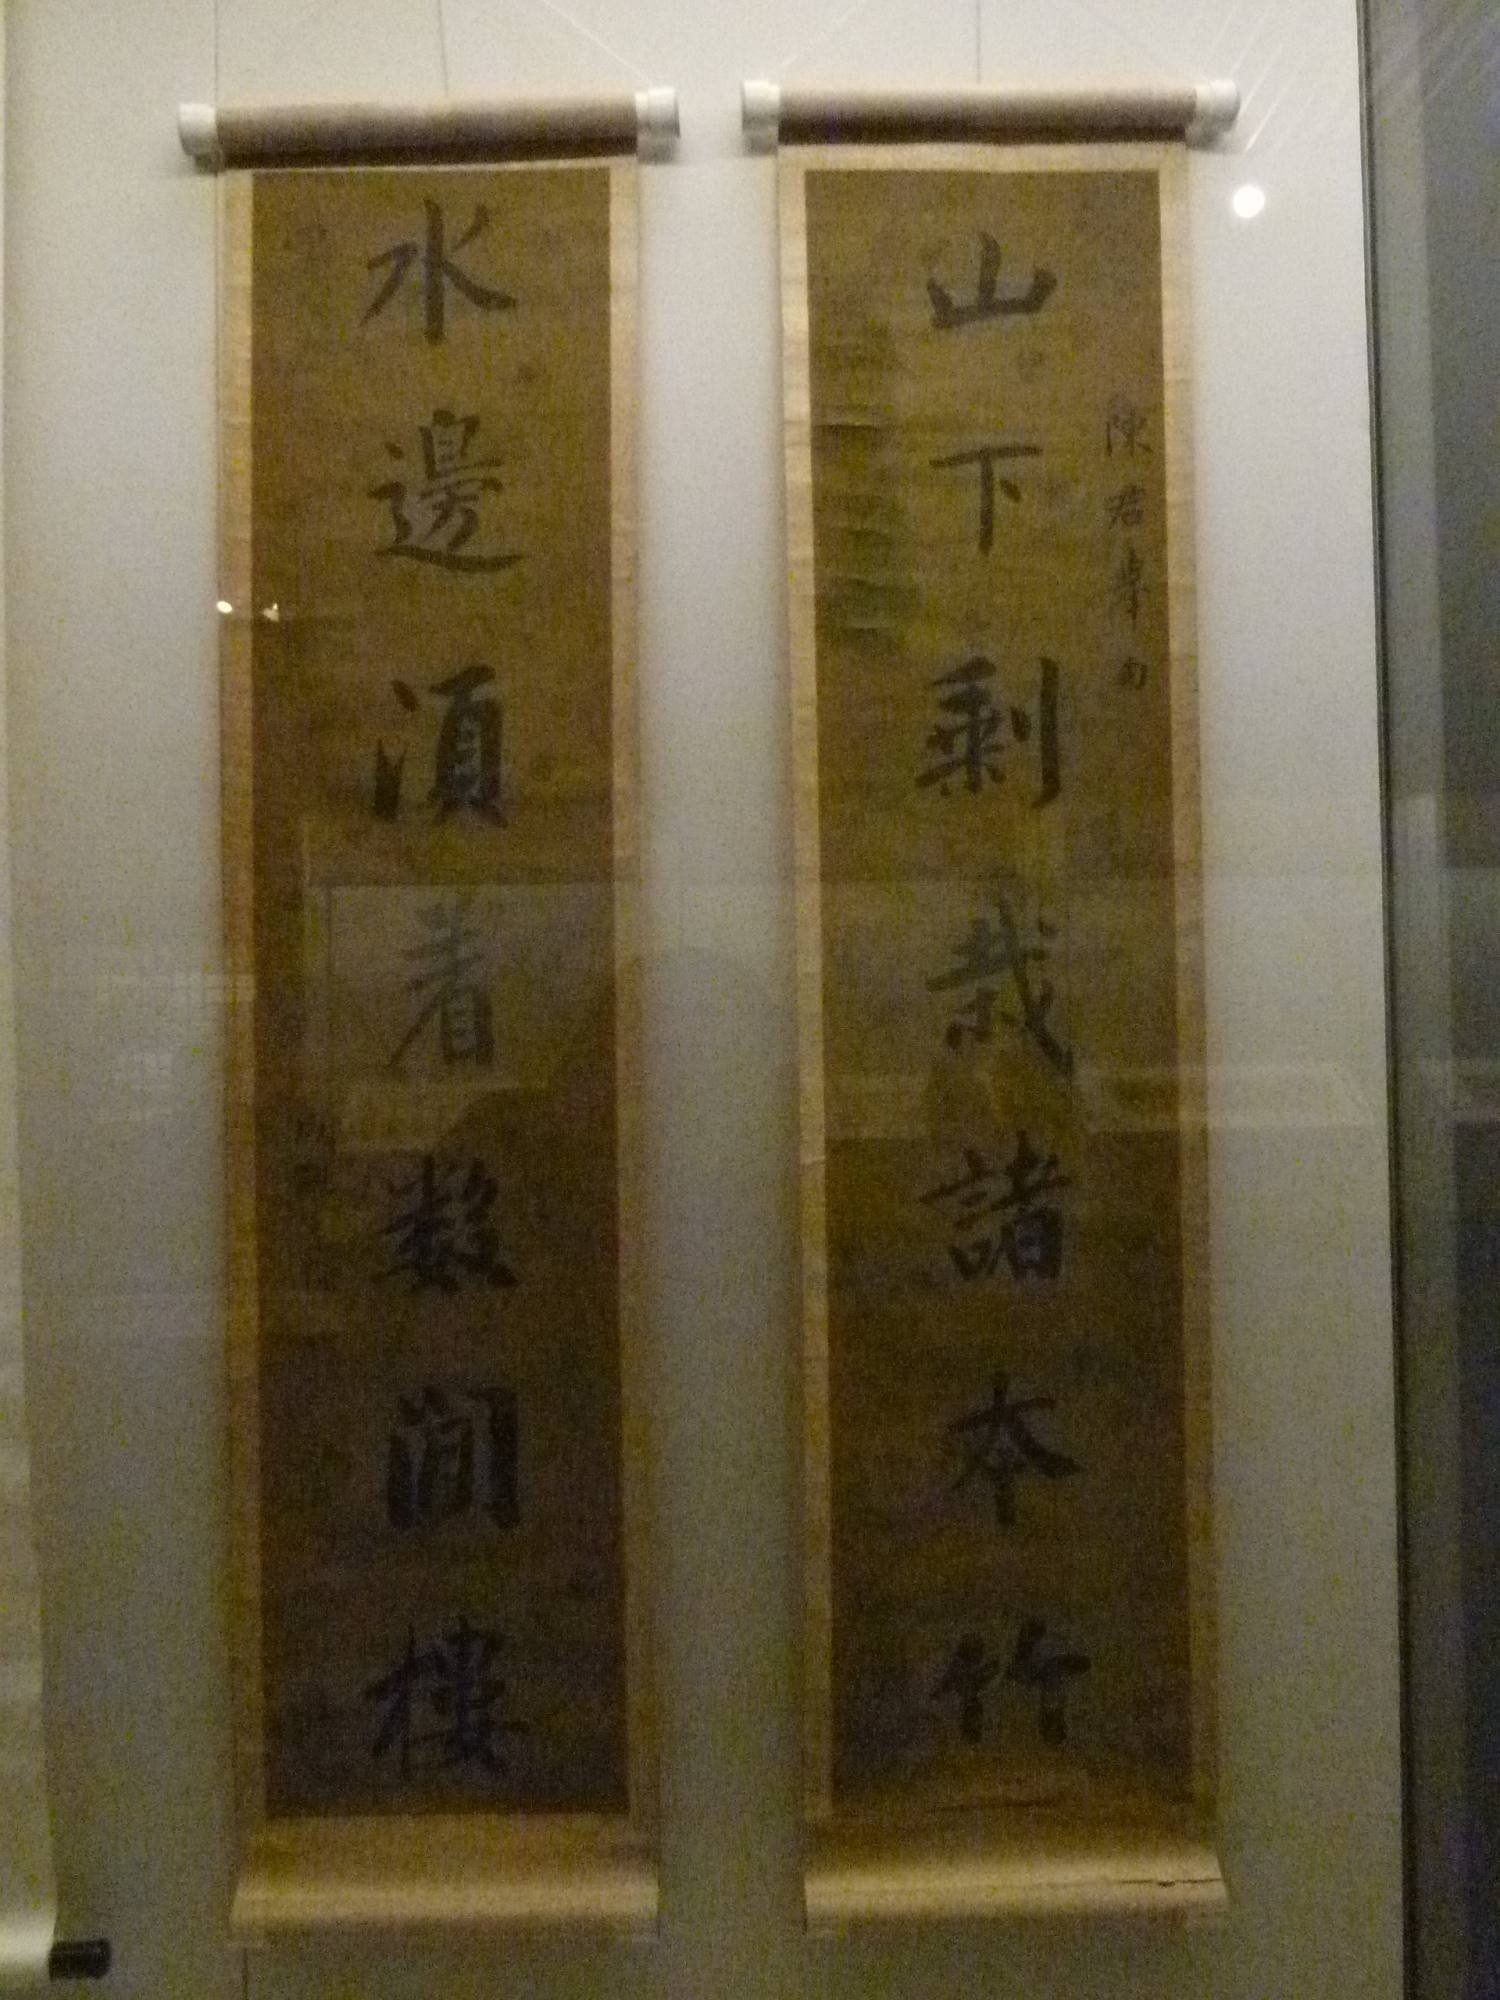 陳君舉句
山下剩栽諸本竹
水邊須着數間樓